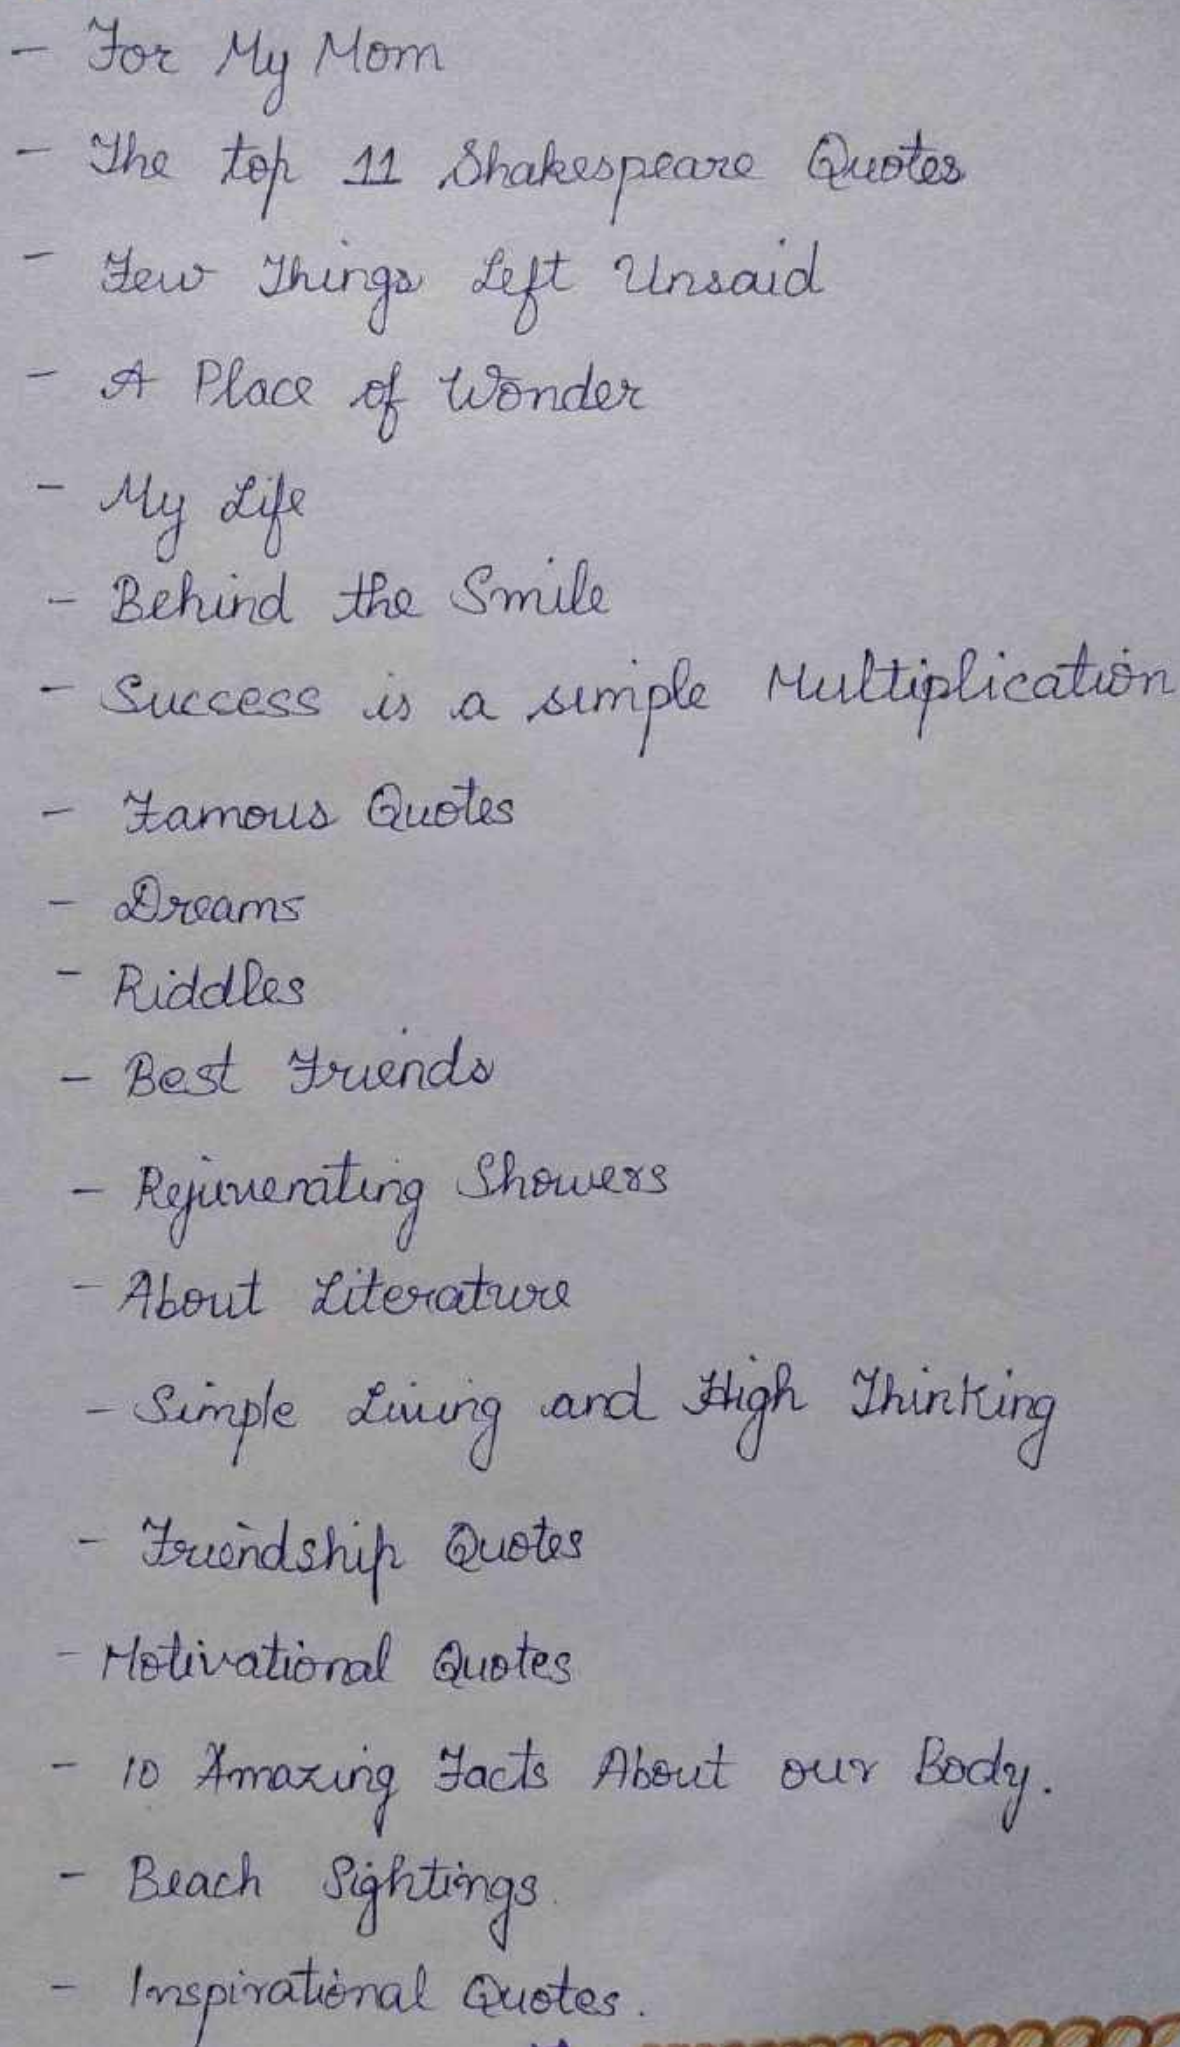 - For My Mom
- The top 11 Shakespeare Quotes
- Few Things Left Unsaid
- A Place of Wonder
- My Life
- Behind the Smile
- Success is a simple Multiplication
- Famous Quotes
- Dreams
- Riddles
- Best Friends
- Rejuvenating Showers
- About Literature
- Simple Living and High Thinking
- Friendship Quotes
- Motivational Quotes
- 10 Amazing Facts About our Body.
- Beach Sightings.
- Inspirational Quotes.